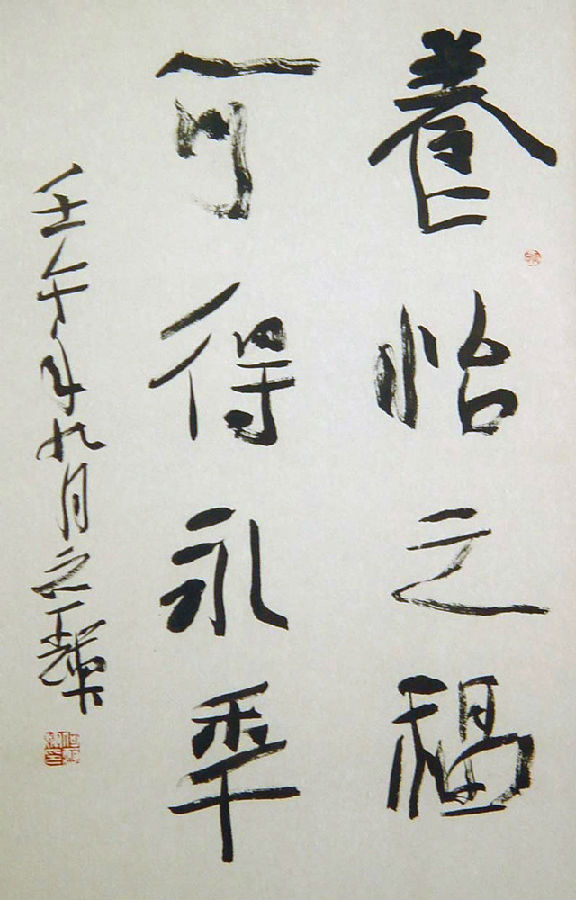 養怡之福
可得永秊
壬午年九月